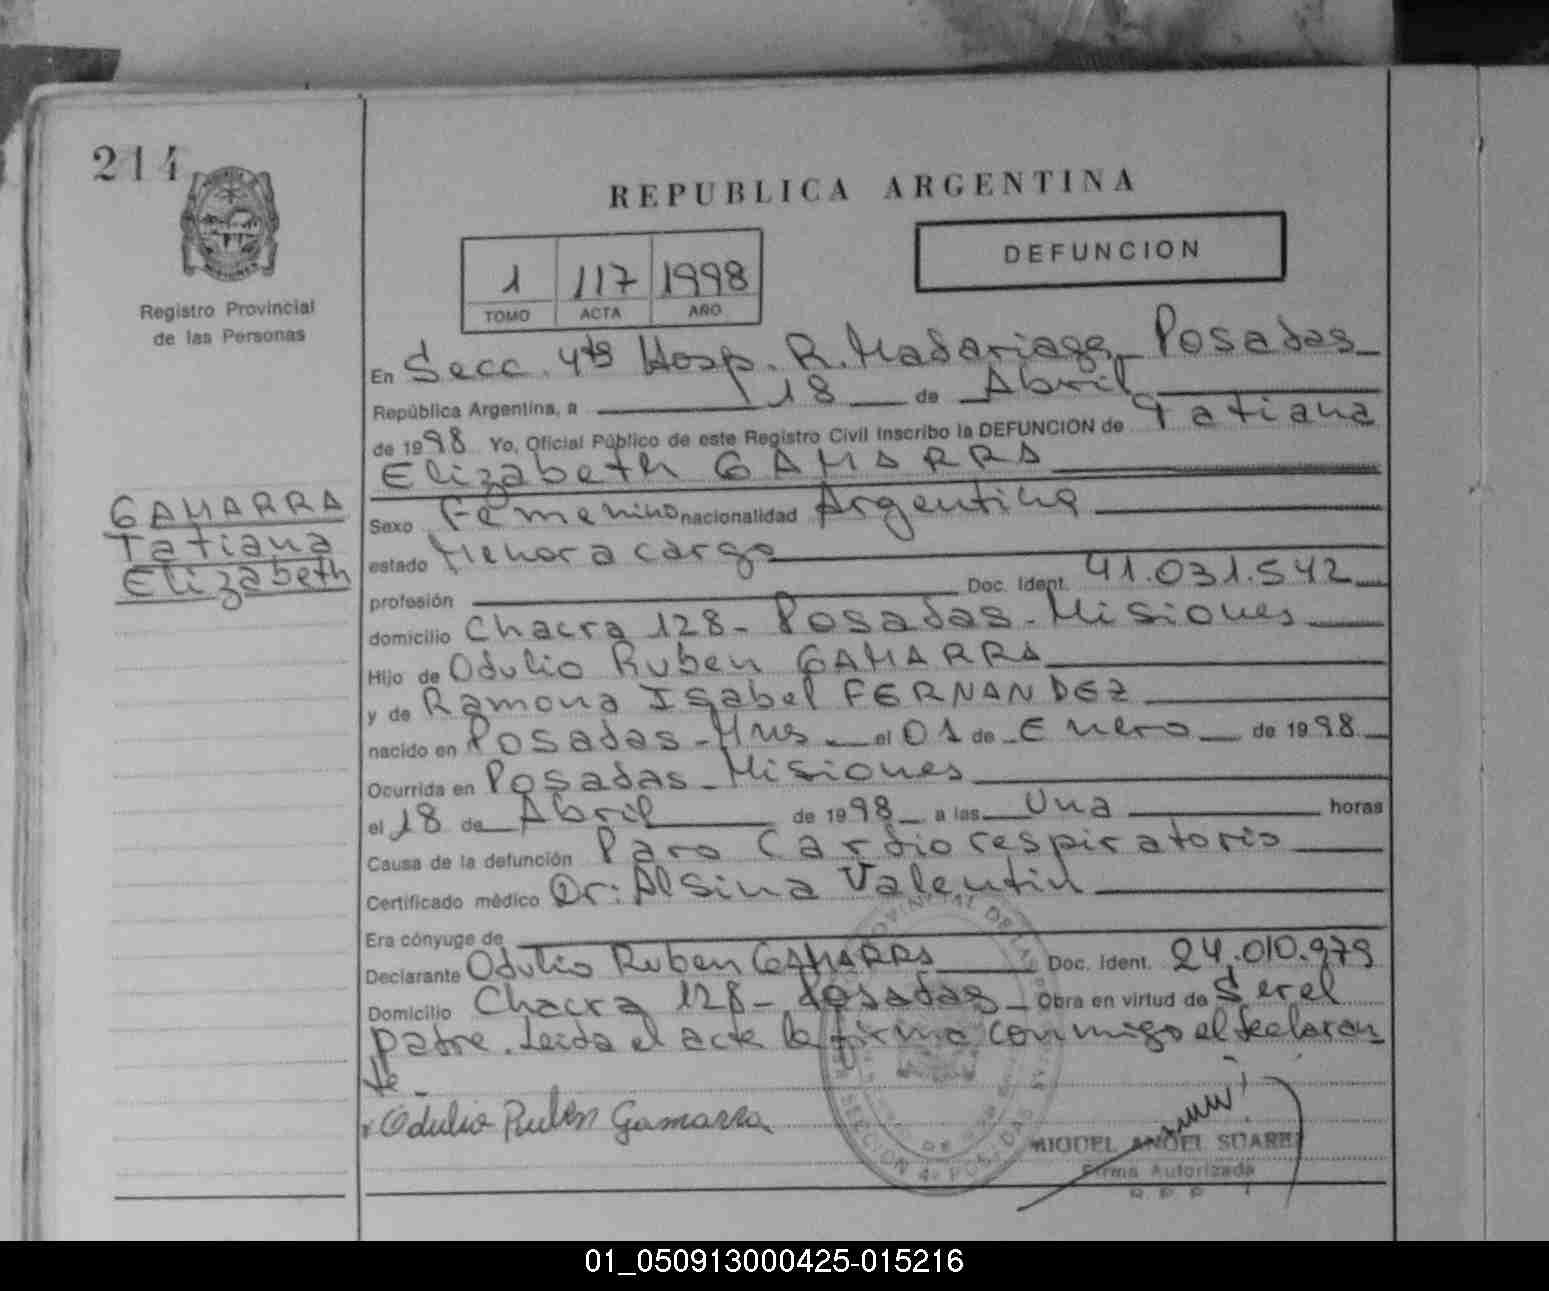 214
REPUBLICA ARGENTINA
Registro Provincial
de las Personas
1 117 1998
TOMO ACTA AÑO
DEFUNCION
En Secc. 4ta Hosp. R. Madariaga - Posadas -
República Argentina, a 18 de Abril
de 1998 Yo, Oficial Público de este Registro Civil Inscribo la DEFUNCION de Tatiana
Elizabeth GAMARRA
GAMARRA
Tatiana
Elizabeth
Sexo Femenino nacionalidad Argentina
estado Menor a cargo
profesión Doc. Ident. 41.031.542
domicilio Chacra 128 - Posadas - Misiones
Hijo de Odulio Ruben GAMARRA
y de Ramona Isabel FERNANDEZ
nacido en Posadas - Mnes el 01 de Enero de 1998
Ocurrida en Posadas - Misiones
el 18 de Abril de 1998 a las Una horas
Causa de la defunción Paro Cardiorespiratorio
Certificado médico Dr: Alsina Valentin
Era cónyuge de
Declarante Odulio Ruben GAMARRA Doc. Ident. 24.010.979
Domicilio Chacra 128 - Posadas - Obra en virtud de Ser el
padre. Leida el acta la firma conmigo el declaran
te -
Odulio Ruben Gamarra
MIGUEL ANGEL SUAREZ
Firma Autorizada
R. P. P.
SECCION 4ª POSADAS
01_050913000425-015216